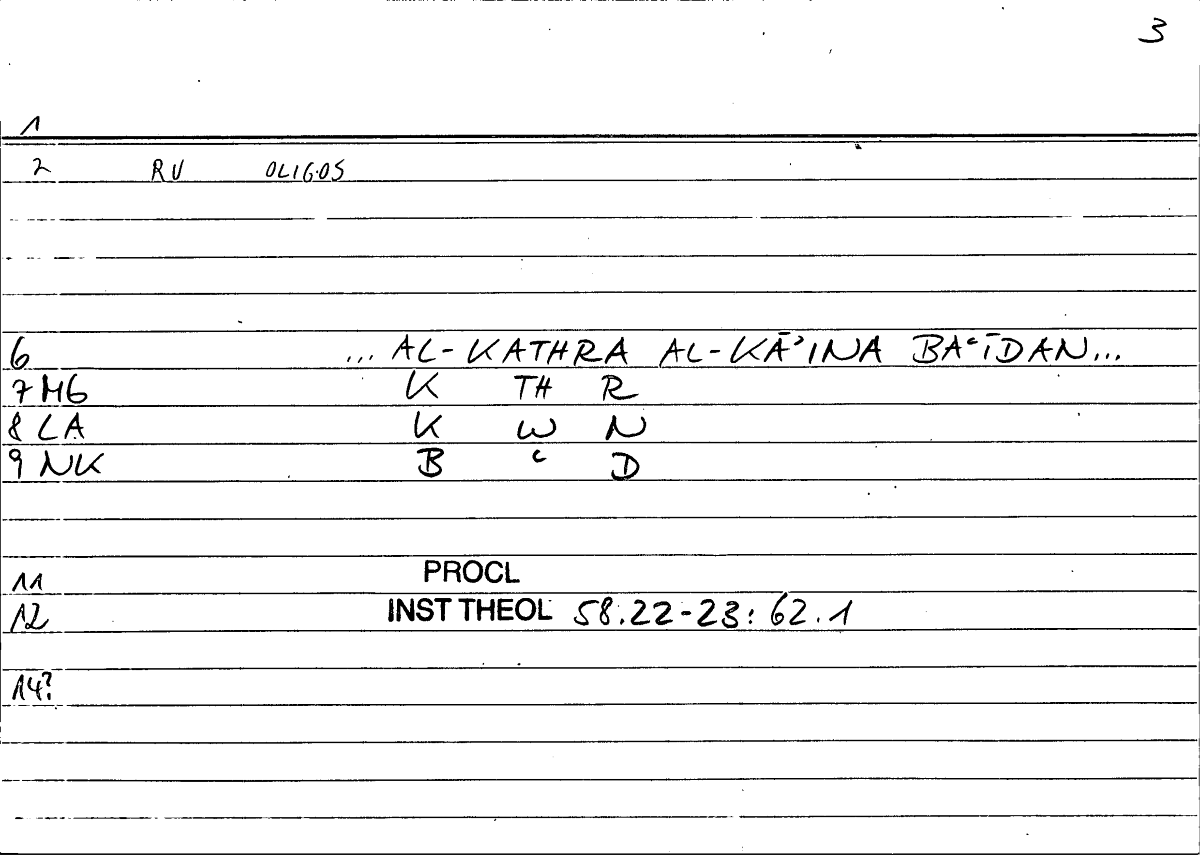 3
1
2 RV OLIGOS
6 ... AL-KATHRA AL-KĀʾINA BAʿĪDAN...
7 MG K TH R
8 LA K W N
9 NK B ʿ D
11 PROCL
12 INST THEOL 58.22-23: 62.1
14?